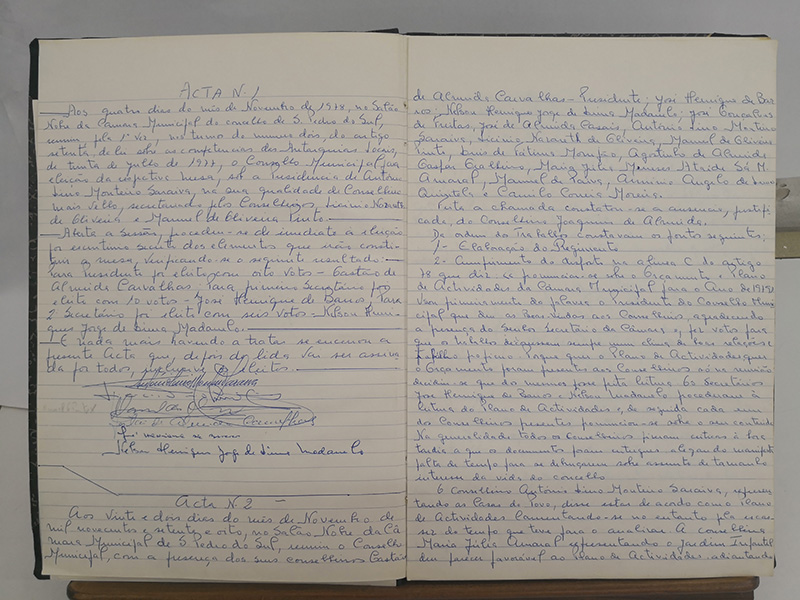 ACTA N.1
Aos quatro dias do mês de Novembro de 1978, no Salão
Nobre da Câmara Municipal do concelho de S. Pedro do Sul,
reuniu pela 1ª vez, nos termos do numero dois, do artigo
setenta, da lei sobre as competencias das Autarquias Locais,
de trinta de Julho de 1977, o Conselho Municipal para
eleição da respectiva mesa, sob a Presidencia de António
Lino Monteiro Saraiva, na sua qualidade de Conselheiro
mais velho, secretariado pelos Conselheiros, Licinio Nazareth
de Oliveira e Manuel de Oliveira Pinto.
Aberta a Sessão, procedeu-se de imediato à eleição
por escrutinio secreto dos elementos que irão consti-
tuir a mesa, verificando-se o seguinte resultado:
Para Presidente foi eleito com oito votos - Gastão de
Almeida Carvalhas; Para primeiro Secretário foi
eleito com 10 votos - José Henrique de Barros; Para
2º Secretário foi eleito com seis votos - Nelson Henri-
ques Jorge de Lima Madanelo.
E nada mais havendo a tratar se encerrou a
presente Acta que, depois de lida vai ser assina-
da por todos, inclusivé os eleitos.
Nelson Henrique Jorge de Lima Madanelo
Acta N.2
Aos vinte e dois dias do mês de Novembro de
mil novecentos e setenta e oito, no Salão Nobre da Câ-
mara Municipal de S. Pedro do Sul, reuniu o Conselho
Municipal, com a presença dos seus conselheiros Gastão
de Almeida Carvalhas - Presidente; José Henrique de Bar-
ros; Nelson Henrique Jorge de Lima Madanelo; José Gonçalves
de Freitas, José de Almeida Casais, António Lino Monteiro
Saraiva, Licinio Nazareth de Oliveira, Manuel de Oliveira
Pinto, Lino de Almeida
Gaspar Maria Júlia M.
Amaral, Manuel de Paiva, Arminio Angelo de
Quintela e Camilo Correia Moreira.
Feita a chamada constatou-se a ausencia, justifi-
cada, do Conselheiro Joaquim de Almeida.
Da ordem do Trabalho constavam os pontos seguintes:
1- Elaboração do Regimento
2- Cumprimento do disposto na alinea C. do artigo
78 que diz: pronunciar-se sobre o Orçamento e Plano
de Actividades da Câmara Municipal para o Ano de 1979.
Usou primeiramente da palavra o Presidente do Conselho Muni-
cipal que deu as boas vindas aos Conselheiros, agradecendo
a presença do Senhor Secretário da Câmara e fez votos para
que os trabalhos decorressem sempre num clima de boas relações e
Porque o Plano de Actividades e
o Orçamento foram presentes aos Conselheiros só na reunião
decidiu-se que dos mesmos fosse feita leitura. Os Secretários
José Henrique de Barros e Nelson Madanelo procederam à
leitura do Plano de Actividades e, de seguida cada um
dos Conselheiros presentes pronunciou-se sobre o seu conteúdo.
Na generalidade todos os Conselheiros
os documentos foram entregues alegando manifesta
falta de tempo para se debruçarem sobre assunto de tamanho
interesse da vida do concelho.
O Conselheiro António Lino Monteiro Saraiva, represen-
tando as Casas do Povo, disse estar de acordo com o Plano
de Actividades lamentando-se no entanto pela escas-
sez do tempo que teve para o analisar. A conselheira
Maria Júlia Amaral representando o Jardim Infantil
deu parecer favorável ao Plano de Actividades adiantando